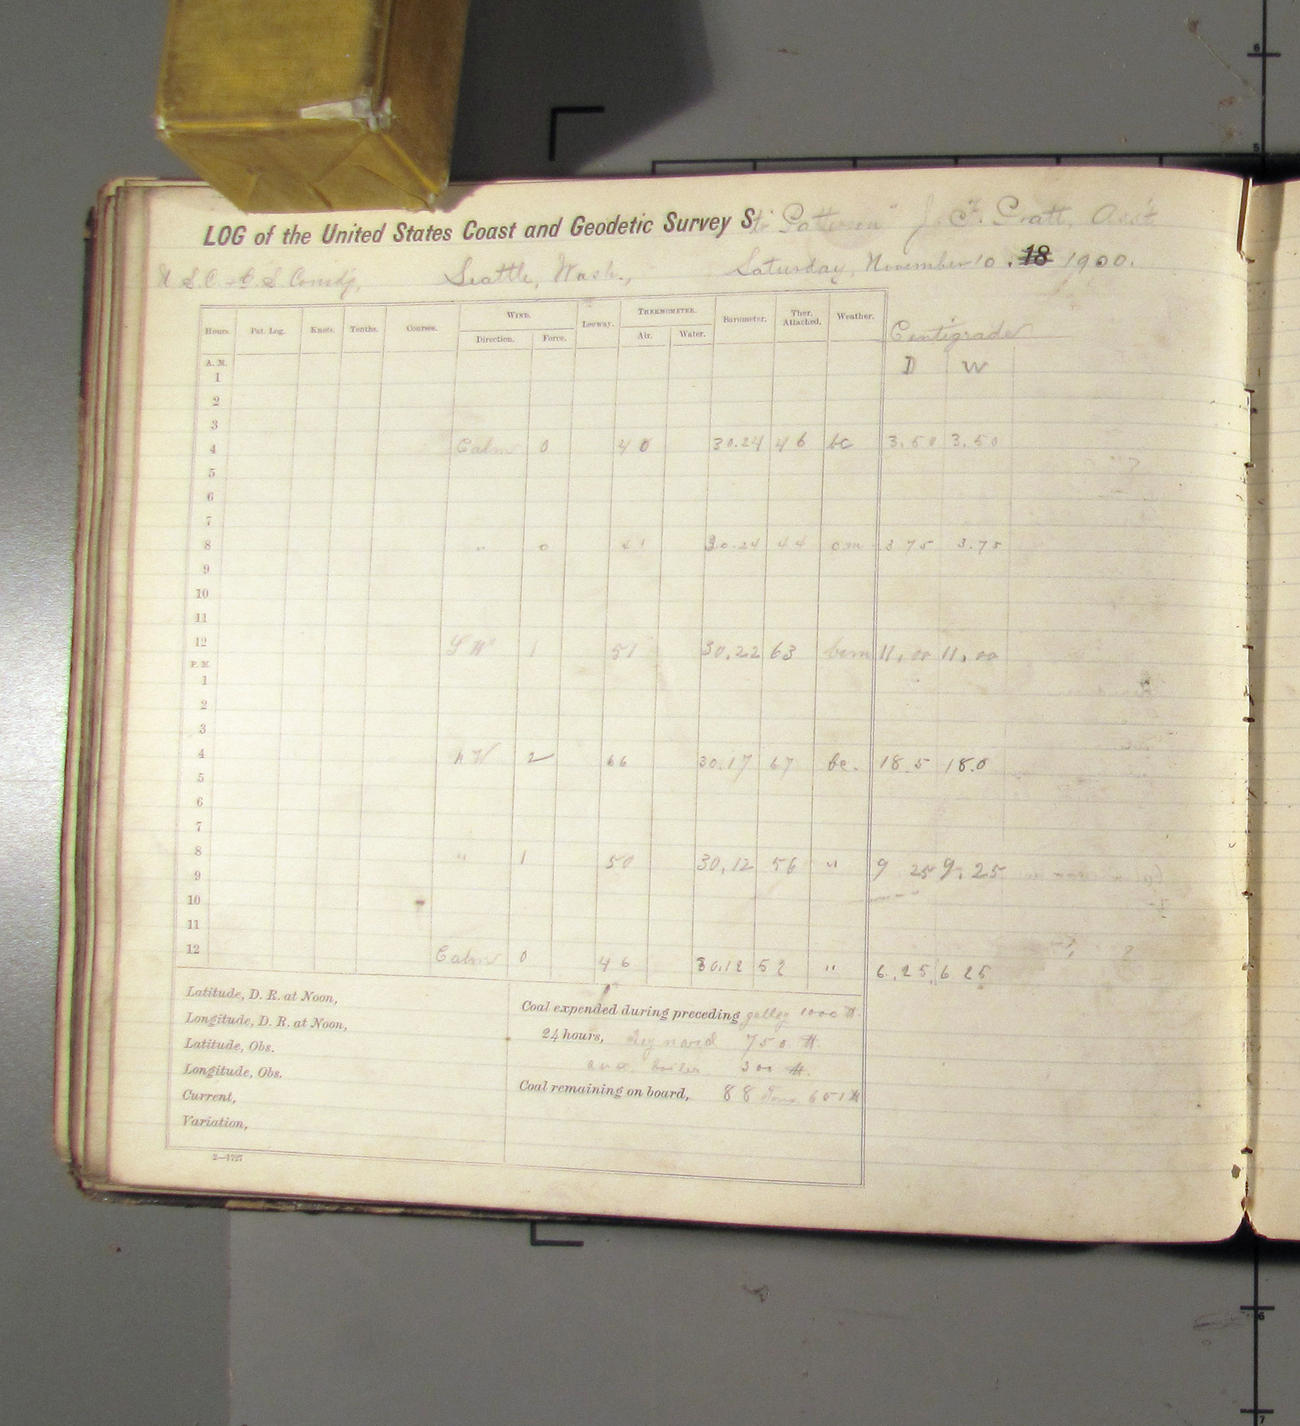 LOG of the United States Coast and Geodetic Survey Str "Patterson" J. F. Pratt, Ass't
U.S.C. & G.S. Comd'g, Seattle, Wash., Saturday, November 10, 18 1900.
Hours. Pat. Log. Knots. Tenths. Courses. WIND. Leeway. THERMOMETER. Barometer. Ther. Attached. Weather. Centigrade
Direction. Force. Air. Water. D W
A. M.
1
2
3
4 Calm 0 40 30.24 46 bc 3.50 3.50
5
6
7
8 " 0 41 30.24 44 om 3 75 3.75
9
10
11
12 SW 1 51 30.22 63 bcm 11.00 11.00
P. M.
1
2
3
4 NW 2 66 30.17 67 bc. 18.5 18.0
5
6
7
8 " 1 50 30.12 56 " 9 25 9.25
9
10
11
12 Calm 0 46 30.12 52 " 6.25 6 25
Latitude, D. R. at Noon,
Longitude, D. R. at Noon,
Latitude, Obs.
Longitude, Obs.
Current,
Variation,
Coal expended during preceding galley 1000 #
24 hours, 750 #
aux. boiler 300 #.
Coal remaining on board, 88 Tons 601 #
2—1727
6
5
6
7